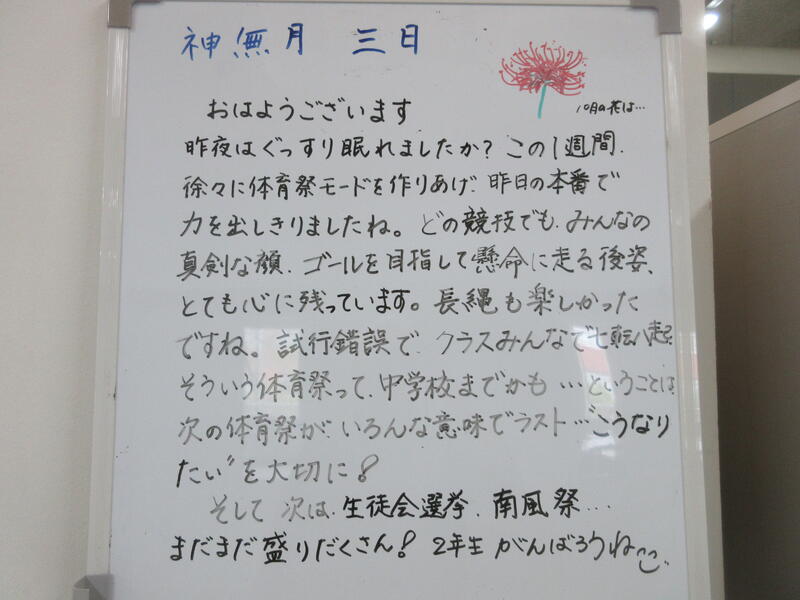 神無月 三日
10月の花は…
おはようございます
昨夜はぐっすり眠れましたか？この1週間、
徐々に体育祭モードを作りあげ、昨日の本番で
力を出しきりましたね。どの競技でも、みんなの
真剣な顔、ゴールを目指して懸命に走る後姿、
とても心に残っています。長縄も楽しかった
ですね。試行錯誤で、クラスみんなで七転八起。
そういう体育祭って、中学校までかも…ということは、
次の体育祭が、いろんな意味でラスト…“こうなり
たい”を大切に！
そして 次は、生徒会選挙、南風祭…
まだまだ盛りだくさん！ 2年生 がんばろうね